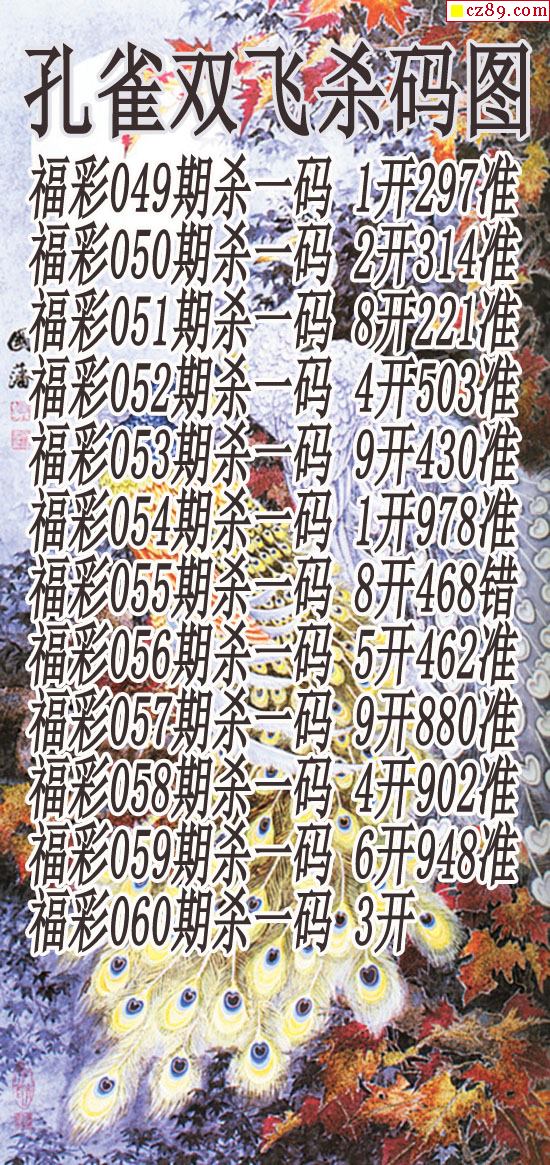 cz89.com
孔雀双飞杀码图
福彩049期杀一码 1开297准
福彩050期杀一码 2开314准
福彩051期杀一码 8开221准
福彩052期杀一码 4开503准
福彩053期杀一码 9开430准
福彩054期杀一码 1开978准
福彩055期杀一码 8开468错
福彩056期杀一码 5开462准
福彩057期杀一码 9开880准
福彩058期杀一码 4开902准
福彩059期杀一码 6开948准
福彩060期杀一码 3开